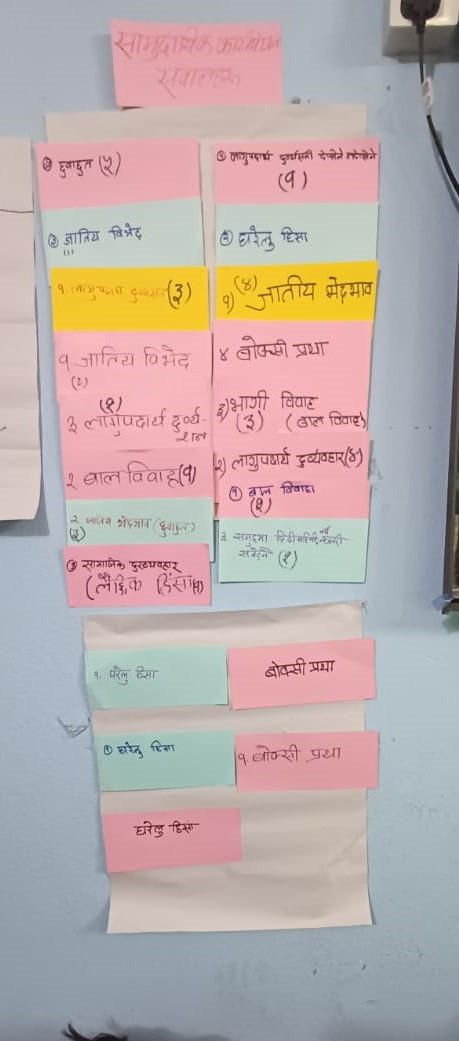 सामुदायिक
सवालहरू
③ छुवाछुत (५)
② जातिय विभेद
१. लागुपदार्थ दुर्व्यसन (३)
१ जातिय विभेद
(२)
(१)
३ लागुपदार्थ दुर्व्य-
शन
२ बाल विवाह (१)
२ जातिय भेदभाव (छुवाछुत)
(३)
③ सामाजिक दुरव्यवहार
(लैङ्गिक हिंसा) (१)
③ लागुपदार्थ दुर्व्यसनी
(१)
② घरेलु हिंसा
(४)
१) जातीय भेदभाव
४ बोक्सी प्रथा
३) भागी विवाह
(३) (बाल विवाह)
२) लागुपदार्थ दुर्व्यवहार (४)
① बाल विवाह
(१)
३ समुहमा
(१)
१. घरेलु हिंसा
बोक्सी प्रथा
① घरेलु हिंसा
१ बोक्सी प्रथा
घरेलु हिंसा